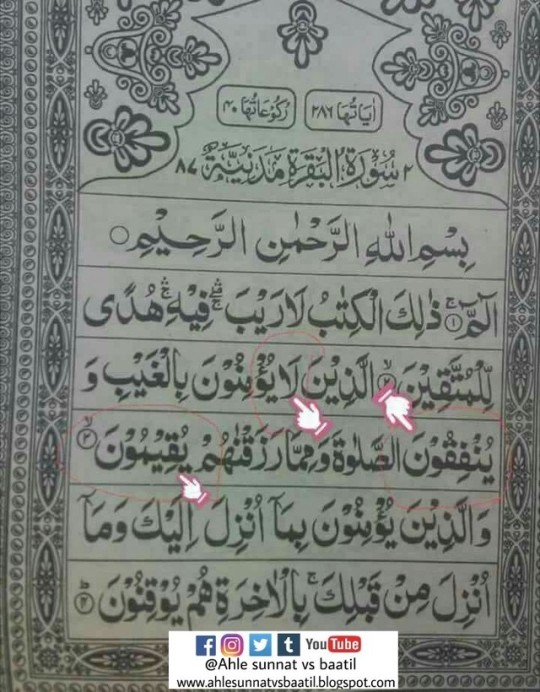 اٰيَاتُهَا ٢٨٦ رُكُوْعَاتُهَا ٤٠
٢ سُوْرَةُ الْبَقَرَةِ مَدَنِيَّةٌ ٨٧
بِسْمِ اللّٰهِ الرَّحْمٰنِ الرَّحِيْمِ ○
الٓمّٓ ۚ ﴿١﴾ ذٰلِكَ الْكِتٰبُ لَا رَيْبَ ۛۚ فِيْهِ ۛۚ هُدًى
لِّلْمُتَّقِيْنَ ۙ ﴿٢﴾ الَّذِيْنَ لَا يُؤْمِنُوْنَ بِالْغَيْبِ وَ
يُنْفِقُوْنَ الصَّلٰوةَ وَمِمَّا رَزَقْنٰهُمْ يُقِيْمُوْنَ ۙ ﴿٣﴾
وَالَّذِيْنَ يُؤْمِنُوْنَ بِمَآ اُنْزِلَ اِلَيْكَ وَمَآ
اُنْزِلَ مِنْ قَبْلِكَ ۚ بِالْاٰخِرَةِ هُمْ يُوْقِنُوْنَ ؕ ﴿٤﴾
You Tube
@Ahle sunnat vs baatil
www.ahlesunnatvsbaatil.blogspot.com